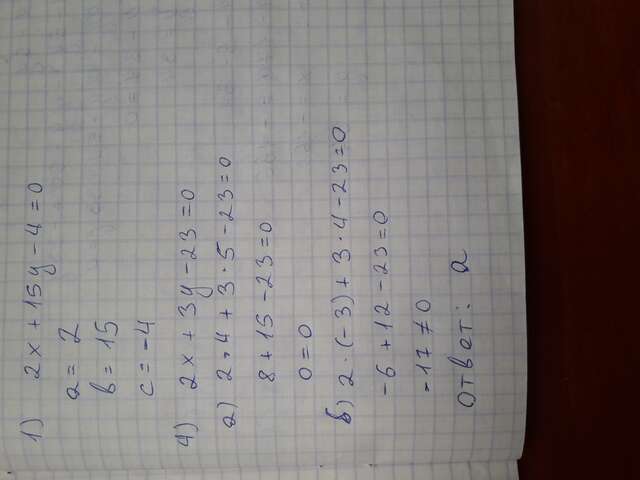 1) 2x + 15y - 4 = 0
a = 2
b = 15
c = -4
4) 2x + 3y - 23 = 0
a) 2 · 4 + 3 · 5 - 23 = 0
8 + 15 - 23 = 0
0 = 0
б) 2 · (-3) + 3 · 4 - 23 = 0
-6 + 12 - 23 = 0
-17 ≠ 0
Ответ: a